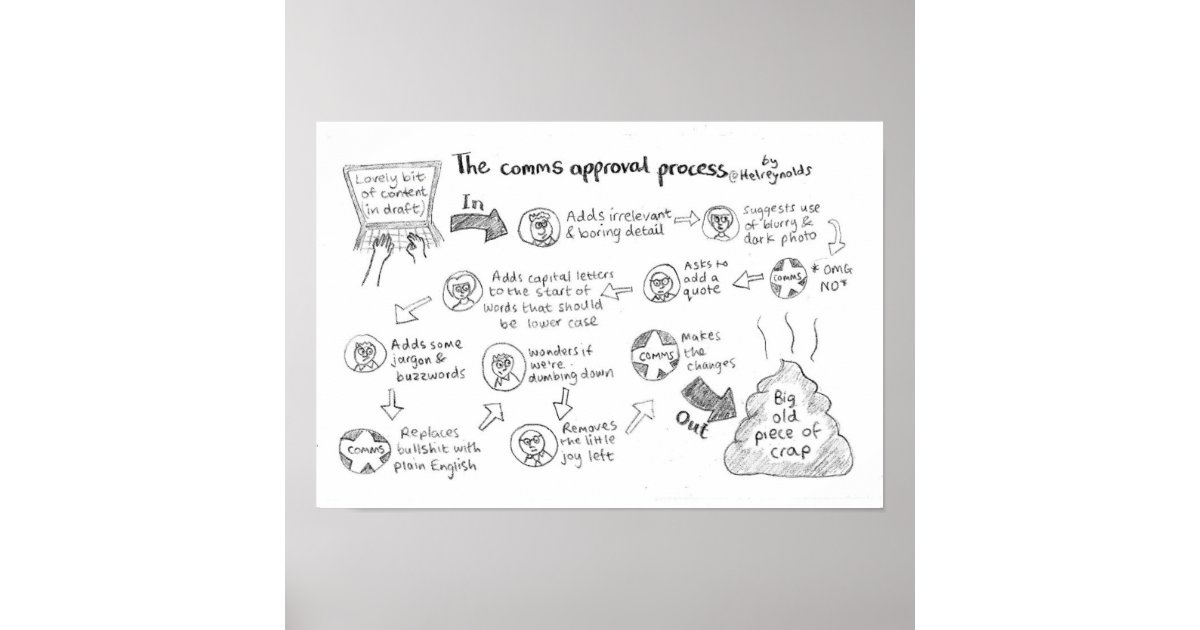 The comms approval process
by
@Helreynolds
Lovely bit
of content
(in draft)
In
Adds irrelevant
& boring detail
suggests use
of blurry &
dark photo
COMMS
*OMG
NO*
Asks to
add a
quote
Adds capital letters
to the start of
words that should
be lower case
Adds some
jargon &
buzzwords
COMMS
Replaces
bullshit with
plain English
wonders if
we're
dumbing down
Removes
the little
joy left
COMMS
Makes
the
changes
Out
Big
old
piece of
crap